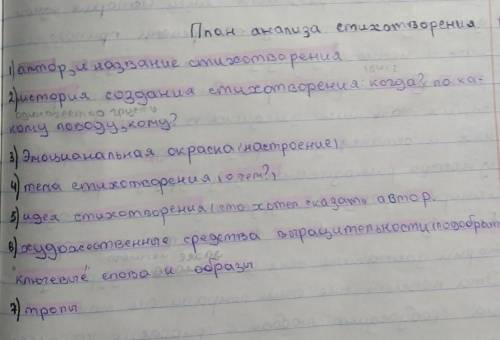 План анализа стихотворения.
1) автор, и название стихотворения
2) история создания стихотворения когда?, по ка-
кому поводу, кому?
3) Эмоциональная окраска (настроение)
4) тема стихотворения (о чем?)
5) идея стихотворения (что хотел сказать автор.
6) художественные средства выразительности (подобрать
ключевые слова и образы
7) тропы